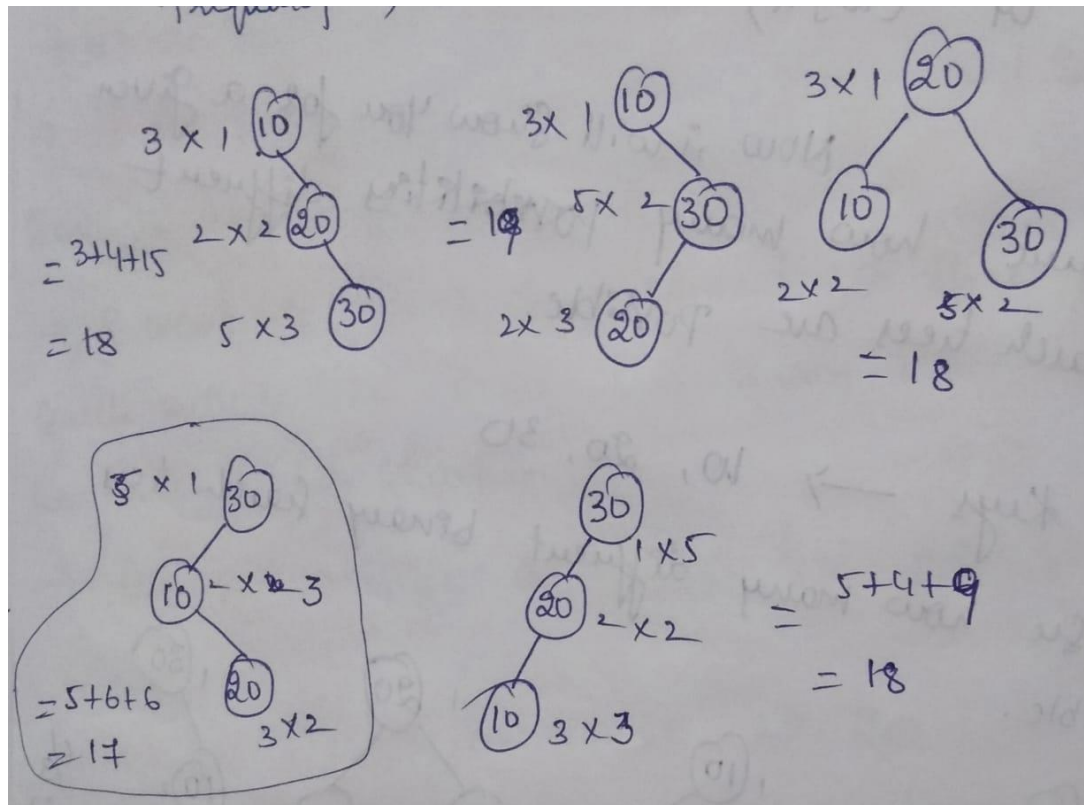 3 × 1 10
2 × 2 20
= 3+4+15
= 18 5 × 3 30
3 × 1 10
5 × 2 30
= 19
2 × 3 20
3 × 1 20
10 30
2 × 2 5 × 2
= 18
5 × 1 30
10 2 × 3
20
3 × 2
= 5+6+6
= 17
30
1 × 5
20 2 × 2
10 3 × 3
= 5+4+9
= 18